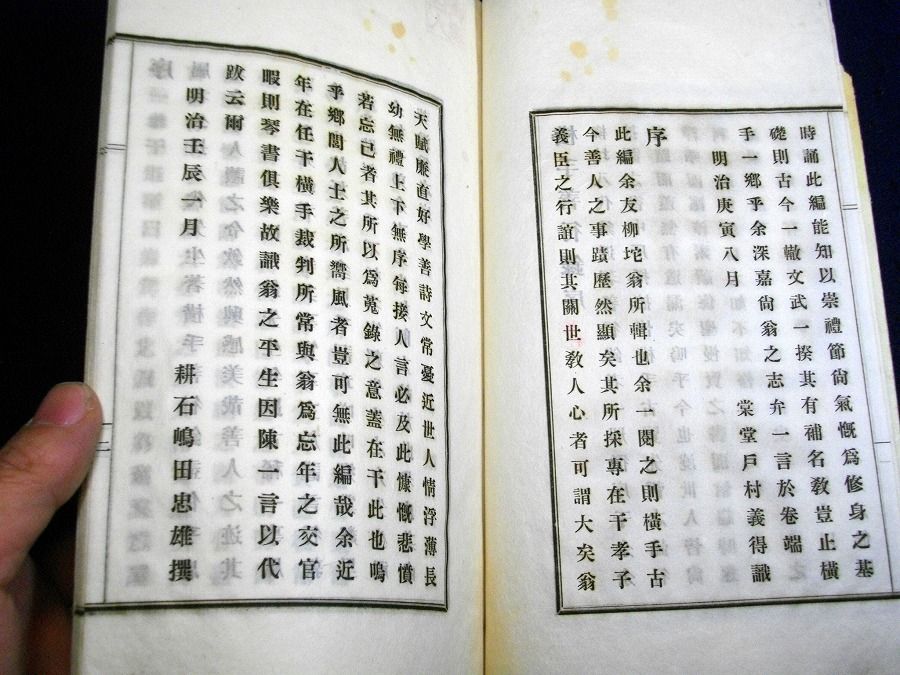 時誦此編能知以崇禮節尙氣慨爲修身之基
礎則古今一轍文武一揆其有補名敎豈止橫
手一鄕乎余深嘉尙翁之志弁一言於卷端
明治庚寅八月　棠堂戶村義得識
序
此編余友柳坨翁所輯也余一閱之則橫手古
今善人之事蹟歷然顯矣其所採專在于孝子
義臣之行誼則其關世敎人心者可謂大矣翁
天賦廉直好學善詩文常憂近世人情浮薄長
幼無禮上下無序每接人言必及此慷慨悲憤
若忘己者其所以爲蒐錄之意蓋在于此也嗚
乎鄕閭人士之所嚮風者豈可無此編哉余近
年在任于橫手裁判所常與翁爲忘年之交官
暇則琴書俱樂故識翁之平生因陳一言以代
跋云爾
明治壬辰一月　耕石嶋田忠雄撰
二